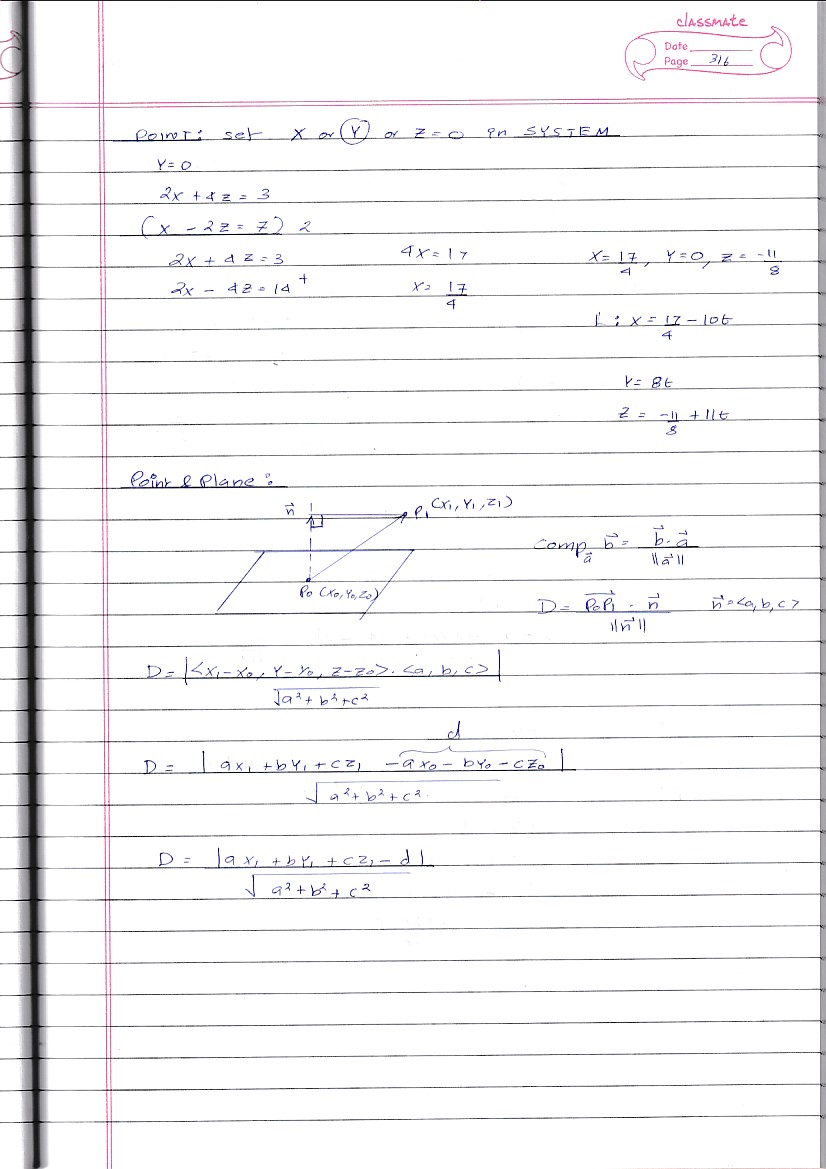 classmate
Date
Page 316
Point: set X or Y or Z=0 in SYSTEM
Y=0
2x + 4z = 3
(x - 2z = 7) 2
2x + 4z = 3
2x - 4z = 14 +
4x = 17
x = 17/4
X = 17/4, Y=0, z = -11/8
L: x = 17/4 - 10t
Y = 8t
Z = -11/8 + 11t
Point & Plane:
n⃗
P₁(x₁, Y₁, z₁)
P₀(x₀, Y₀, z₀)
comp_a⃗ b⃗ = b⃗ · a⃗ / ||a⃗||
D = P₀P₁⃗ · n⃗ / ||n⃗||
n⃗ = <a, b, c>
D = |<x₁-x₀, Y-Y₀, z-z₀> · <a, b, c>| / √a²+b²+c²
d
D = |ax₁ + bY₁ + cz₁ -ax₀ - bY₀ - cz₀| / √a²+b²+c²
D = |ax₁ + bY₁ + cz₁ - d| / √a²+b²+c²